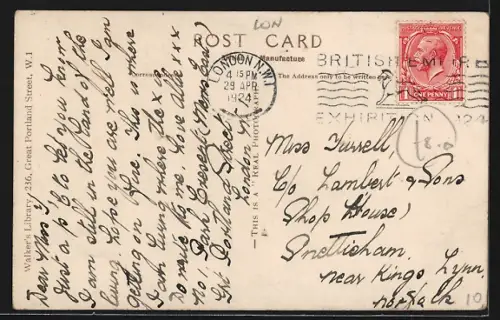 LON
POST CARD
Manufacture
BRITISH EMPIRE
EXHIBITION 1924
LONDON. N.W.1
4 15 PM
29 APR
1924
The Address only to be written
ONE PENNY
Walker's Library, 236, Great Portland Street, W.1
THIS IS A "REAL PHOTOGRAPH"
Dear Miss T
Just a p/c to let you know
I am still in the land of the
living. Hope you are well I am
getting on fine. This is where
I am living where the x is
Do write to me. love Allie xxx
No 1 Park Crescent Mews East
Gt Portland Street
London
Miss Turrell,
c/o Lambert & Sons
Shop House)
Snettisham.
near Kings Lynn,
Norfolk
-8-0
10